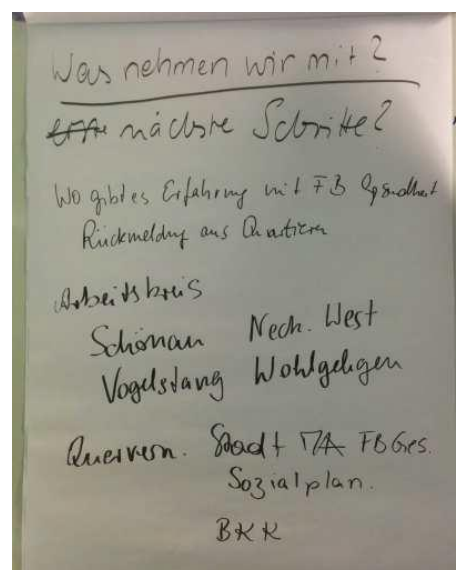 Was nehmen wir mit?
nächste Schritte?
Wo gibt es Erfahrung mit FB Gesundheit
Rückmeldung aus Quartieren
Arbeitskreis
Schönau Neck. West
Vogelstang Wohlgelegen
Quervern. Stadt MA FB Ges.
Sozialplan.
BKK